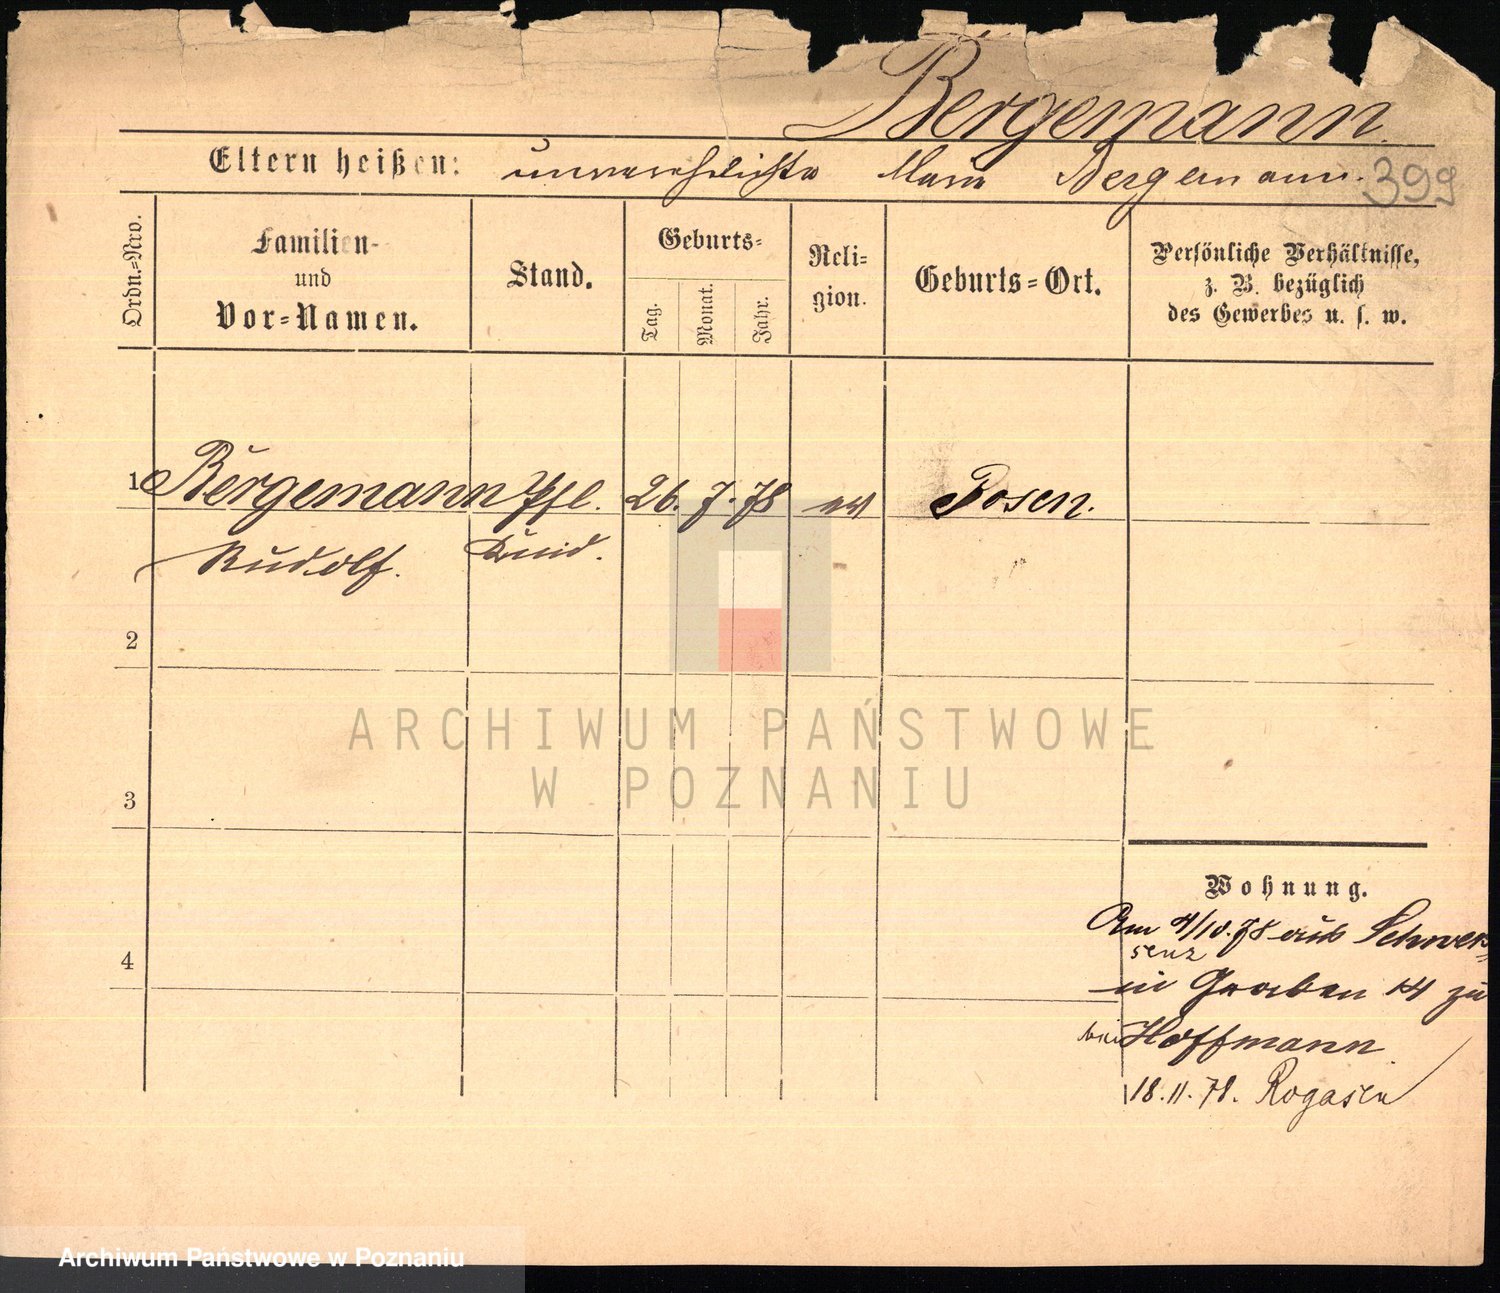 Bergemann.
Eltern heißen: unverehelichte Marie Bergemann. 399
Ordn.-Nro.
Familien-
und
Vor-Namen.
Stand.
Geburts-
Tag.
Monat.
Jahr.
Reli-
gion.
Geburts-Ort.
Persönliche Verhältnisse,
z. B. bezüglich
des Gewerbes u. s. w.
1 Bergemann Pfl. 26. 7. 78 ev Posen.
Rudolf. Kind.
2
3
4
Wohnung.
Am 4/10. 78 aus Schwer=
senz
in Graben 14 zu
bei Hoffmann
18. 11. 78. Rogasen
ARCHIWUM PAŃSTWOWE
W POZNANIU
Archiwum Państwowe w Poznaniu